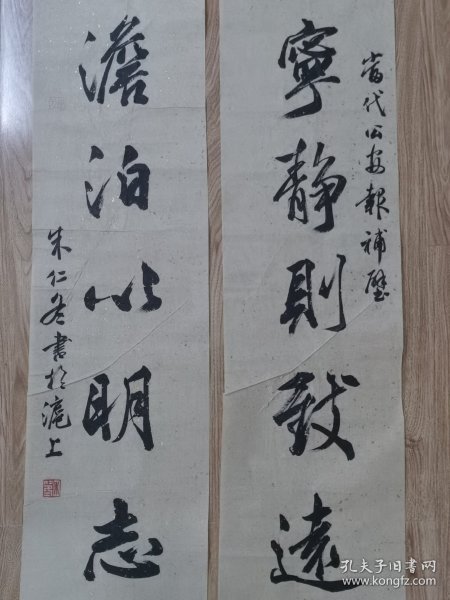 當代公安報補壁
寧靜則致遠
澹泊以明志
朱仁冬書於滬上
孔夫子旧书网
www.kongfz.com